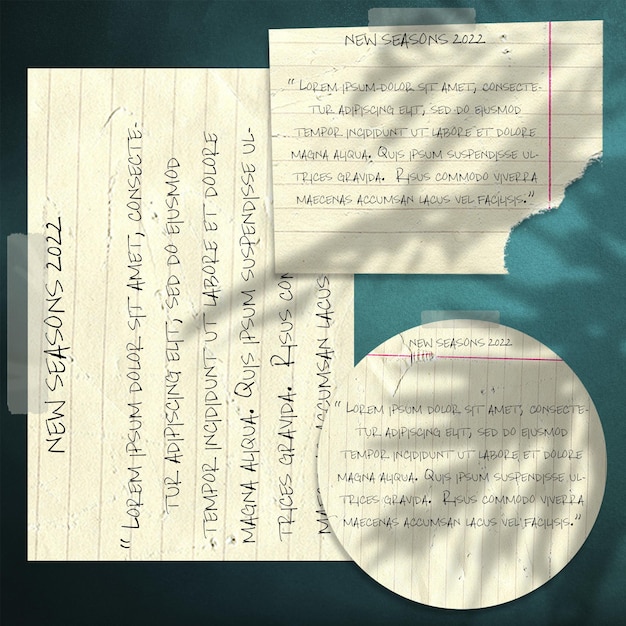 NEW SEASONS 2022
"LOREM IPSUM DOLOR SIT AMET, CONSECTE-
TUR ADIPISCING ELIT, SED DO EIUSMOD
TEMPOR INCIDIDUNT UT LABORE ET DOLORE
MAGNA ALIQUA. QUIS IPSUM SUSPENDISSE UL-
TRICES GRAVIDA. RISUS COMMODO VIVERRA
MAECENAS ACCUMSAN LACUS VEL FACILISIS."
NEW SEASONS 2022
"LOREM IPSUM DOLOR SIT AMET, CONSECTE-
TUR ADIPISCING ELIT, SED DO EIUSMOD
TEMPOR INCIDIDUNT UT LABORE ET DOLORE
MAGNA ALIQUA. QUIS IPSUM SUSPENDISSE UL-
TRICES GRAVIDA. RISUS
ACCUMSAN LACUS
NEW SEASONS 2022
"LOREM IPSUM DOLOR SIT AMET, CONSECTE-
TUR ADIPISCING ELIT, SED DO EIUSMOD
TEMPOR INCIDIDUNT UT LABORE ET DOLORE
MAGNA ALIQUA. QUIS IPSUM SUSPENDISSE UL-
TRICES GRAVIDA. RISUS COMMODO VIVERRA
MAECENAS ACCUMSAN LACUS VEL FACILISIS."